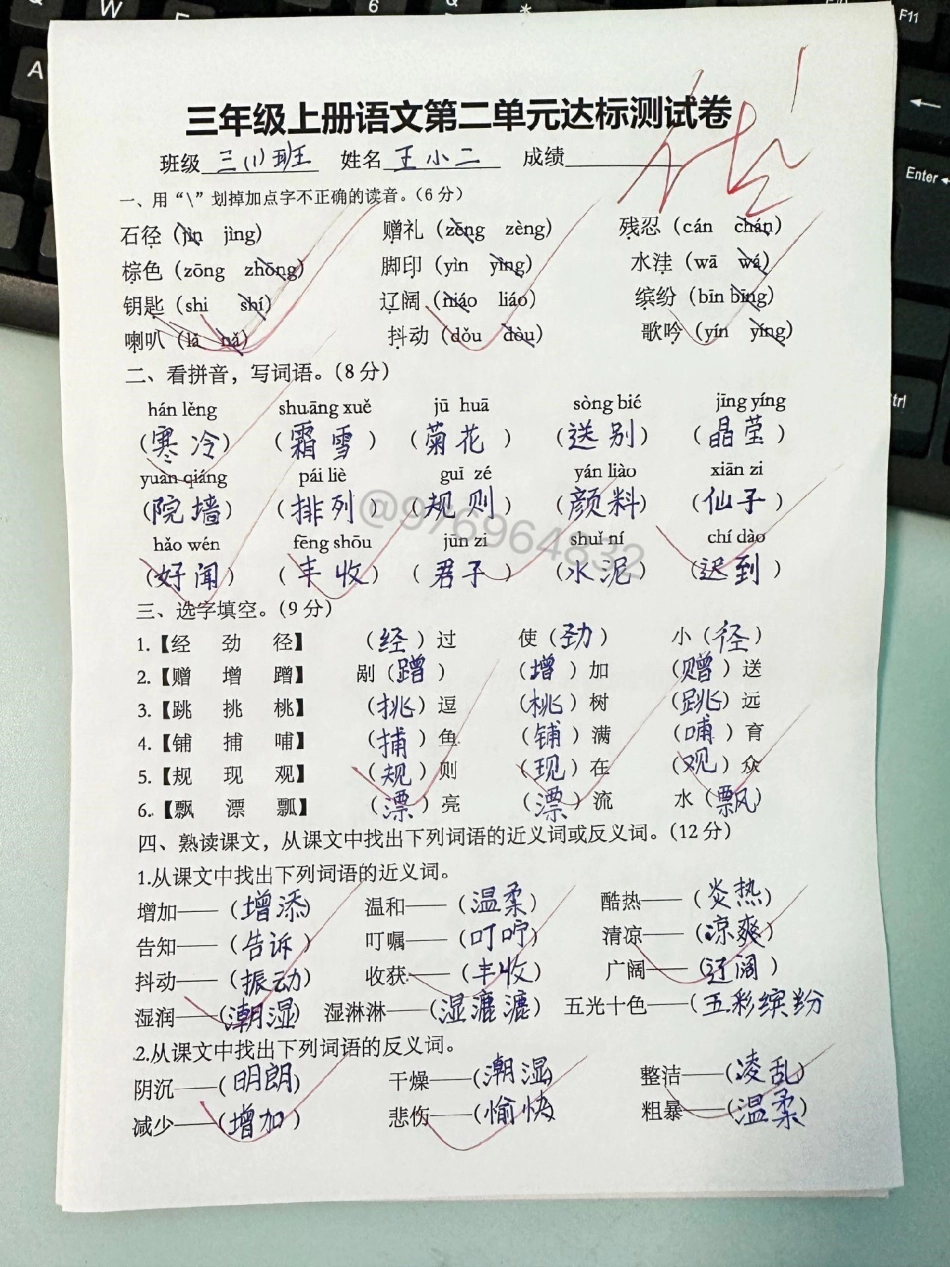 三年级上册语文第二单元达标测试卷
班级 三(1)班 姓名 王小二 成绩
佳
一、用“\”划掉加点字不正确的读音。(6分)
石径(jìn jìng) 赠礼(zēng zèng) 残忍(cán chán)
棕色(zōng zhōng) 脚印(yìn yìng) 水洼(wā wá)
钥匙(shi shí) 辽阔(niáo liáo) 缤纷(bīn bīng)
喇叭(lǎ nǎ) 抖动(dǒu dòu) 歌吟(yín yíng)
二、看拼音,写词语。(8分)
hán lěng shuāng xuě jū huā sòng bié jīng yíng
(寒冷) (霜雪) (菊花) (送别) (晶莹)
yuàn qiáng pái liè guī zé yán liào xiān zi
(院墙) (排列) (规则) (颜料) (仙子)
@976964832
hǎo wén fēng shōu jūn zi shuǐ ní chí dào
(好闻) (丰收) (君子) (水泥) (迟到)
三、选字填空。(9分)
1.【经 劲 径】 (经)过 使(劲) 小(径)
2.【赠 增 蹭】 剐(蹭) (增)加 (赠)送
3.【跳 挑 桃】 (挑)逗 (桃)树 (跳)远
4.【铺 捕 哺】 (捕)鱼 (铺)满 (哺)育
5.【规 现 观】 (规)则 (现)在 (观)众
6.【飘 漂 瓢】 (漂)亮 (漂)流 水(飘)
四、熟读课文,从课文中找出下列词语的近义词或反义词。(12分)
1.从课文中找出下列词语的近义词。
增加——(增添) 温和——(温柔) 酷热——(炎热)
告知——(告诉) 叮嘱——(叮咛) 清凉——(凉爽)
抖动——(振动) 收获——(丰收) 广阔——(辽阔)
湿润——(潮湿) 湿淋淋——(湿漉漉) 五光十色——(五彩缤纷
2.从课文中找出下列词语的反义词。
阴沉——(明朗) 干燥——(潮湿) 整洁——(凌乱)
减少——(增加) 悲伤——(愉快) 粗暴——(温柔)